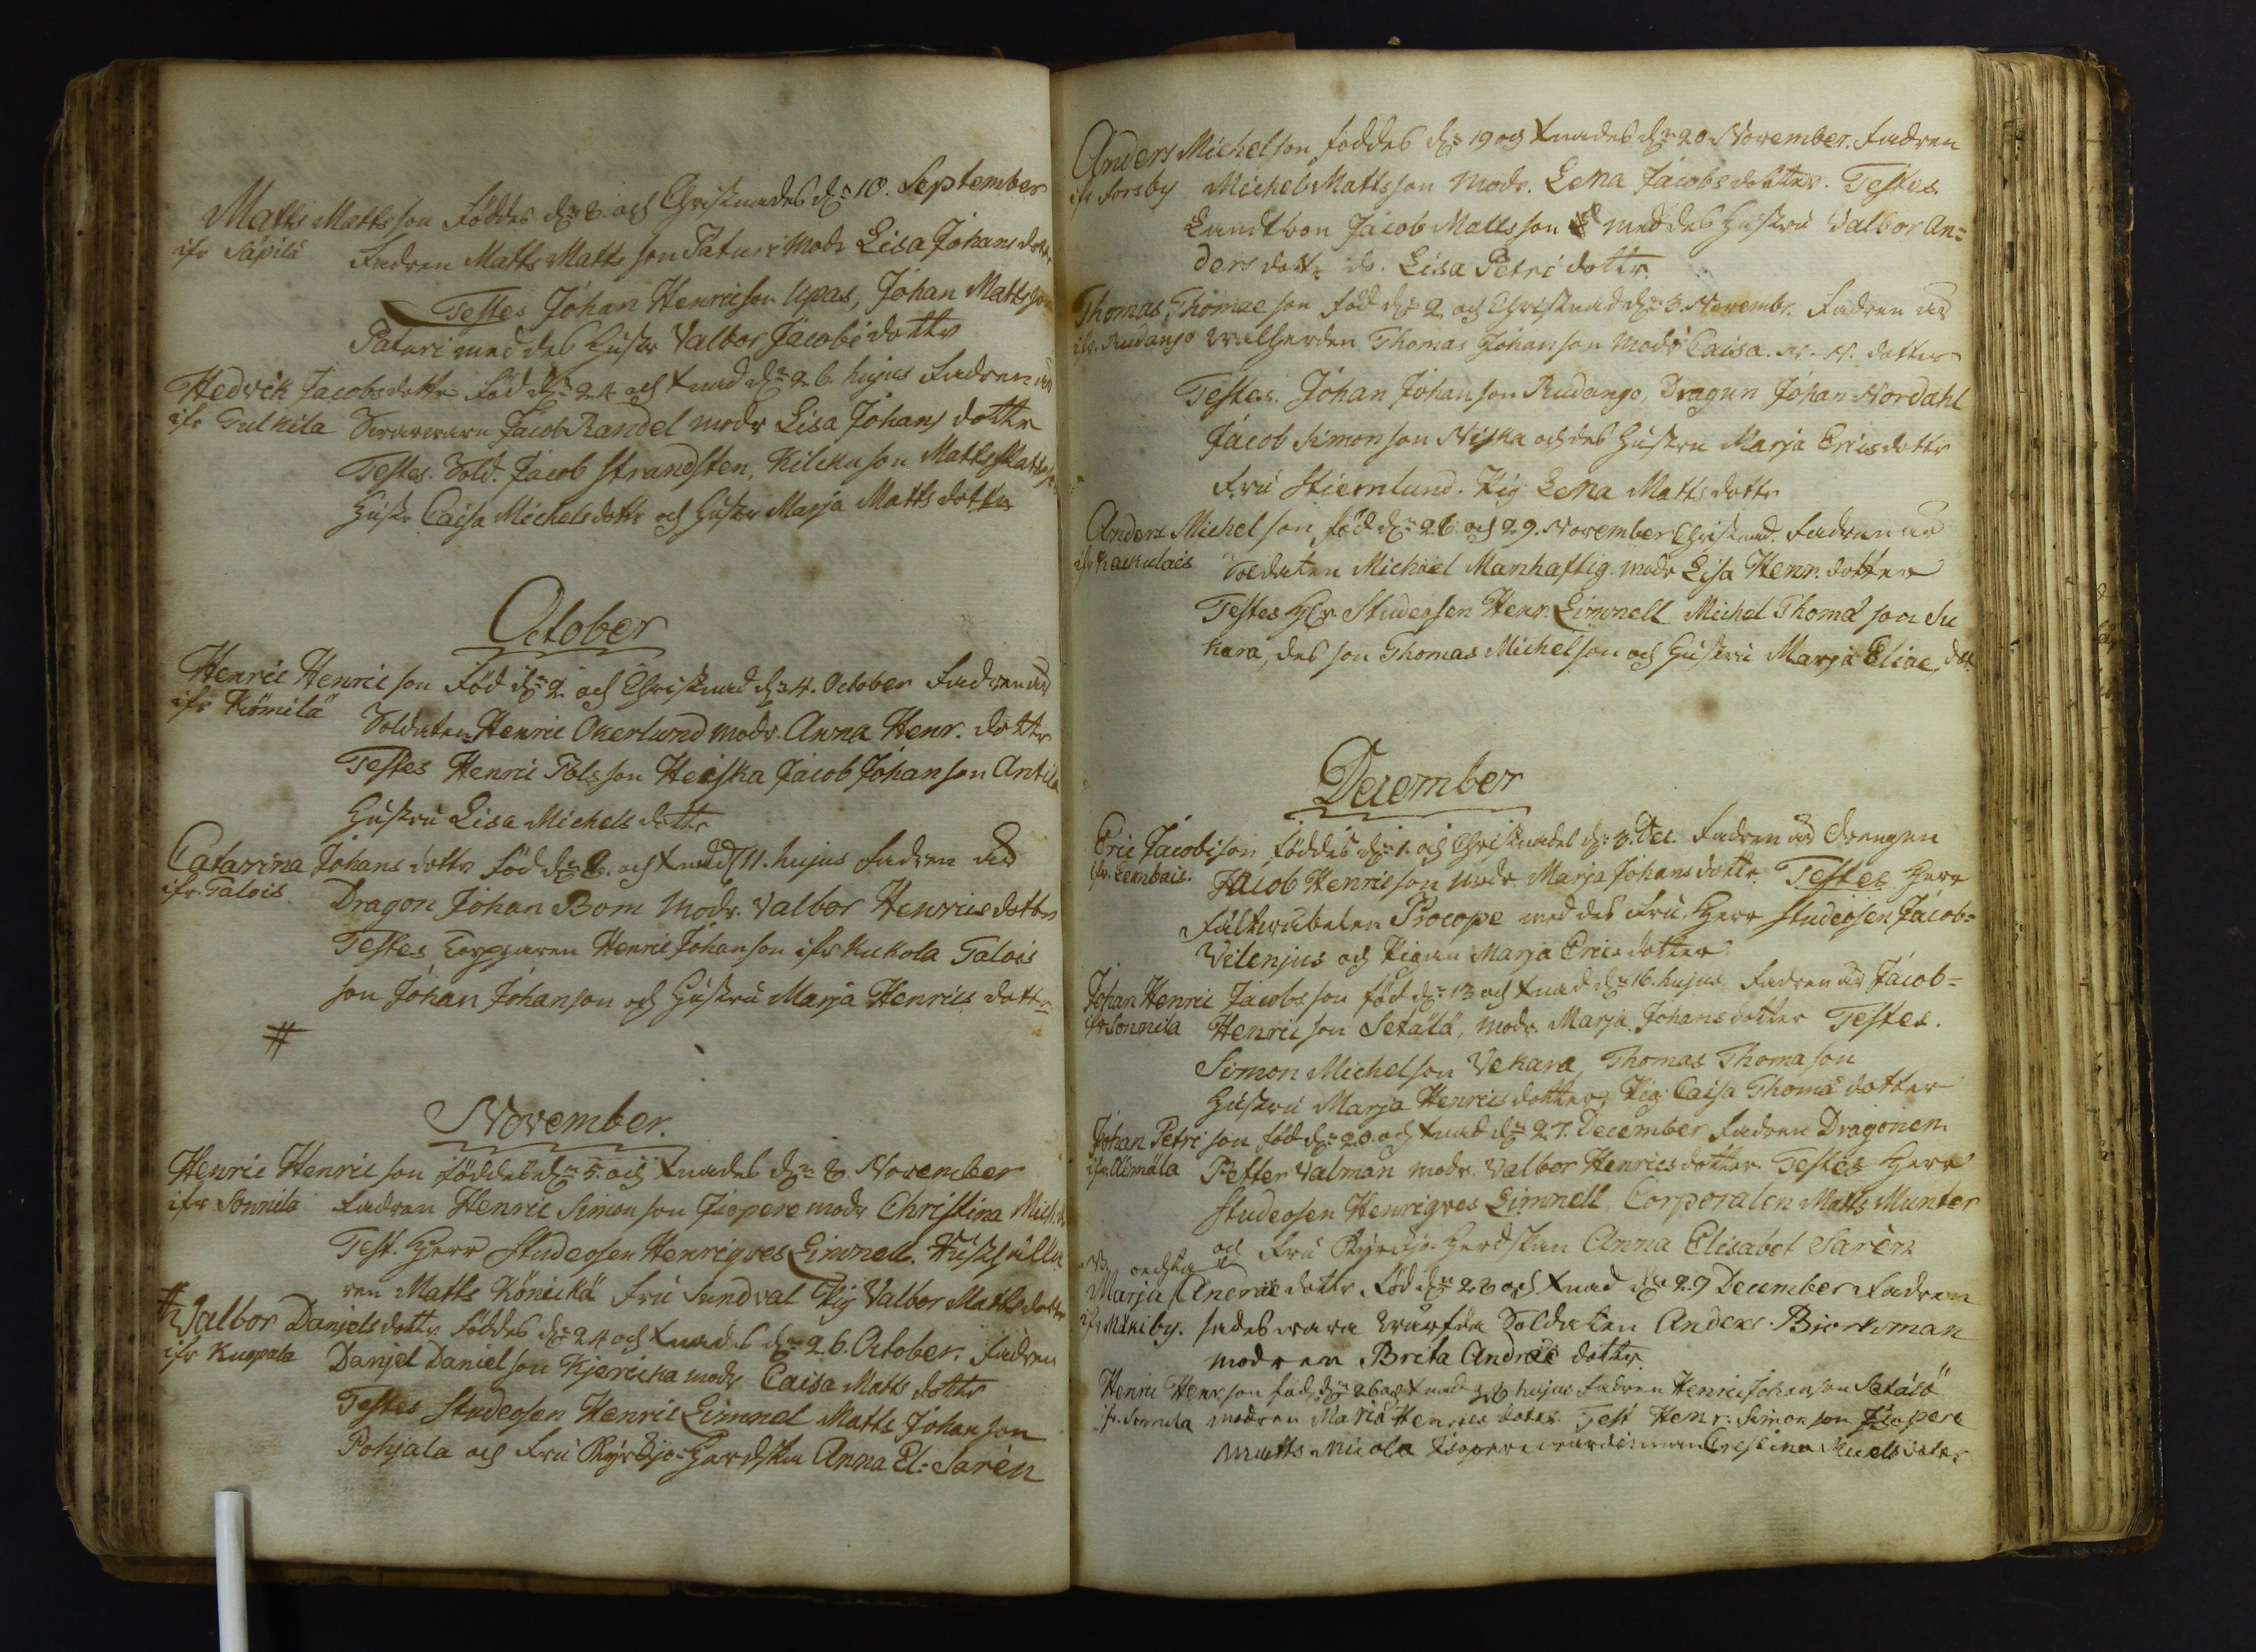 Matts Mattsson föddes d:n 8. och Christnades d:n 10. September
ifr Säpilä Fadren Matts Mattsson Paturi Modr Lisa Johans dottr
Testes Johan Henricson Upas, Johan Mattsson
Paturi med des Hustr Valbor Jacobi dottr
Hedvik Jacobs dottr föd d:n 24 och Xnad d:n 26. hujus Fadren är
ifr Tulkila Jacob Randel modr Lisa Johans dottr
Testes. Sold. Jacob Strandsten, Matts Matts
Hustr. Caisa Michels dottr och Hustr Marja Matts dottr
October
Henric Henricson föd d:n 2 och Christnad d:n 4. October Fadren är
ifr Kömilä Soldaten Henric Okerlund modr. Anna Henr. dottr
Testes Henric Polsson Heiska Jacob Johanson Antila
Hustru Lisa Michels dottr
Catarina Johans dottr föd d:n 8. och Xnad d 11. hujus Fadren är
ifr Talois. Dragon Johan Bom Modr. Valbor Henrics dottr
Testes Torpparen Henric Johanson ifr Kukola Talois
son Johan Johanson och Hustru Marja Henrics dottr
#
November.
Henric Henricson föddes d:n 5. och Xnades d:n 8. November
ifr Sonnila Fadren Henric Simonson Jiopere modr Christina Mich. d.
Test. Herr Studeosen Henriqves Limnell.
ren Matts Könickä Fru Sundval Pig Valbor Matts dottr
# Valbor Daniels dottr. föddes d:n 24 och Xnades d:n 26. October. Fadren
ifr Kuopala Danjel Danielson Kjericka modr Caisa Matts dottr
Testes Studeosen Henric Limnel Matts Johanson
Pohjala och Fru Kyrckjo-Herdskan Anna El: Sarén
Anders Michelson föddes d:n 19 och Xnades d:n 20 November. Fadren
ifr Forsby Michel Mattsson Modr. Lena Jacobs dotter. Testes
Landtbon Jacob Mattsson med des Hustru Valbor An=
ders dottr do. Lisa Petri dottr.
Thomas Thomae son föd d:n 2 och Christnad d:n 3. Novembr. Fadren är
ifr. Rudango Vallherden Thomas Johanson modr Caisa. N. N. dotter
Testes. Johan Johanson Rudango, Dragun Johan Nordahl
Jacob Simonson Niska och des Hustru Marja Erics dottr
Fru Stiernlund. Pig Lena Matts dottr
Anders Michelson föd d:n 26 och 29. November Christnad. Fadren är
ifr Kackulais Soldaten Michael Manhaftig. modr Lisa Henr. dotter
Testes Hr Studeosen Henr. Limnell Michel Thomä son Su
kara, des son Thomas Michelson och Hustru Marja Eliae dot.
December
Eric Jacobison föddes d:n 1. och Christnades d:n 3. Dec. Fadren är drengen
ifr. Lembais. Jacob Henricson Modr Marja Johans dottr. Testes Herr
Fältwäbelen Procope med des Fru, Herr Studeosen Jacob=
Velenjus och Pigan Marja Erics dotter
Johan Henric Jacobsson föd d:n 13 och Xnad d:n 16. hujus Fadren är Jacob=
ifr Sonnila Henricson Setälä, modr. Marja Johans dotter Testes.
Simon Michelson Vekara, Thomas Thomason
Hustru Marja Henrics dotter, Pig Caisa Thomä dotter
Johan Petri son föd d:n 20. och Xnad d:n 27. December Fadren Dragonen
ifr Alimäla Petter Valman modr. Valbor Henrics dotter. Testes Herr
Studeosen Henriqves Limnell Corporalen Matts Munter
och Fru Kyrckjo-Herdskan Anna Elisabet Sarén
NB oechta
Marja Andræ dottr föd d:n 28 och Xnad d:n 29 December Fadren
ifr Mäkiby. sades wara Soldaten Anders Biorkman
modren Brita Andræ dottr.
Henric Henrson föd d:n 26 och Xnad 28 hujus Fadren Henric Johanson Setälä
ifr. Sonnila modren Maria Henrics doter Test Henr. Simonson Jiopere
Matts Micola Jiopere Crestina Micels doter